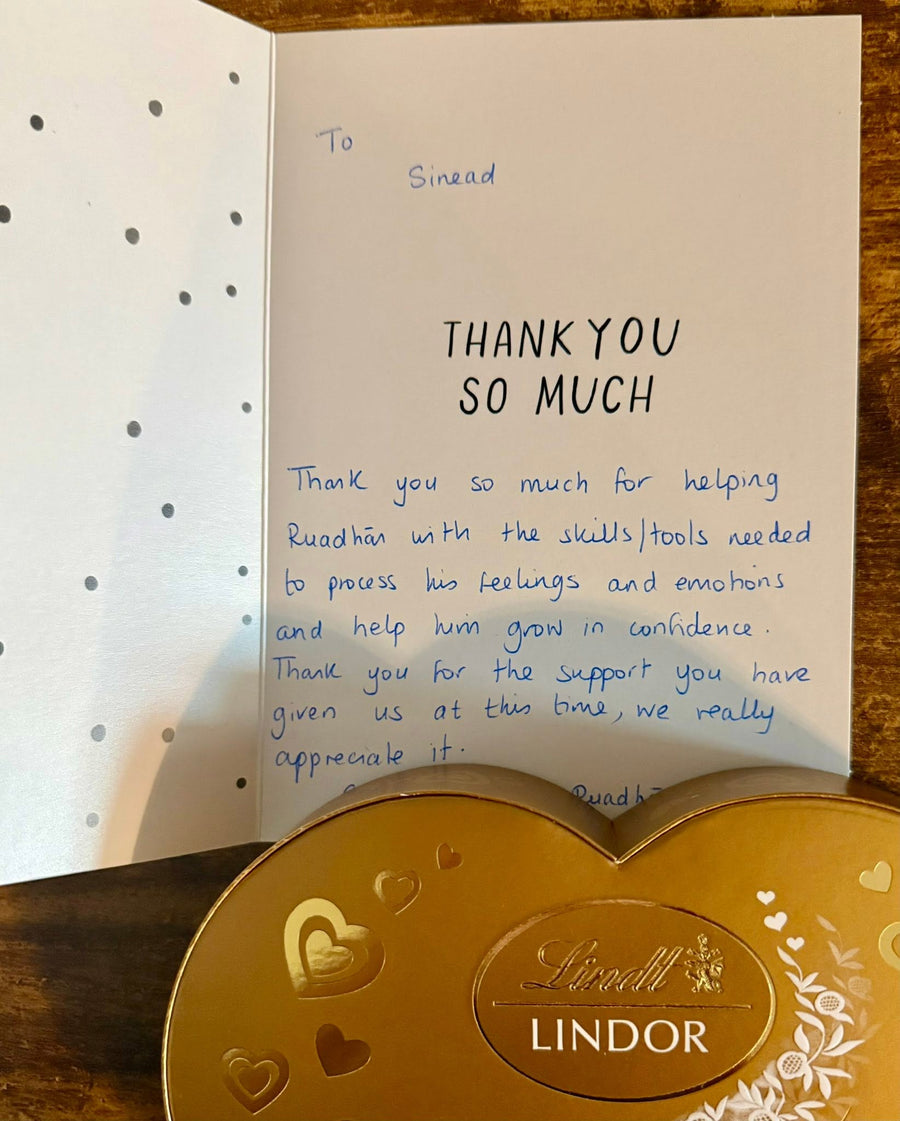 To
Sinead
THANK YOU
SO MUCH
Thank you so much for helping
Ruadhān with the skills/tools needed
to process his feelings and emotions
and help him grow in confidence.
Thank you for the support you have
given us at this time, we really
appreciate it.
Lindt
LINDOR